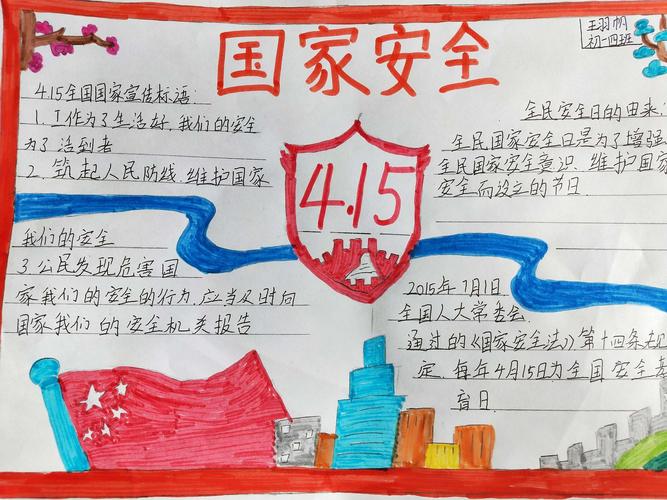 国家安全
王羽帆
初一四班
4.15全国国家宣传标语:
1.工作为了生活好,我们的安全
为了活到老
2.筑起人民防线.维护国家
我们的安全
3.公民发现危害国
家我们的安全的行为,应当及时向
国家我们的安全机关报告
4.15
全民安全日的由来.
全民国家安全日是为了增强
全民国家安全意识.维护国家
安全而设立的节日.
2015年7月1日
全国人大常委会
通过的《国家安全法》第十四条规
定.每年4月15日为全国安全教
育日.